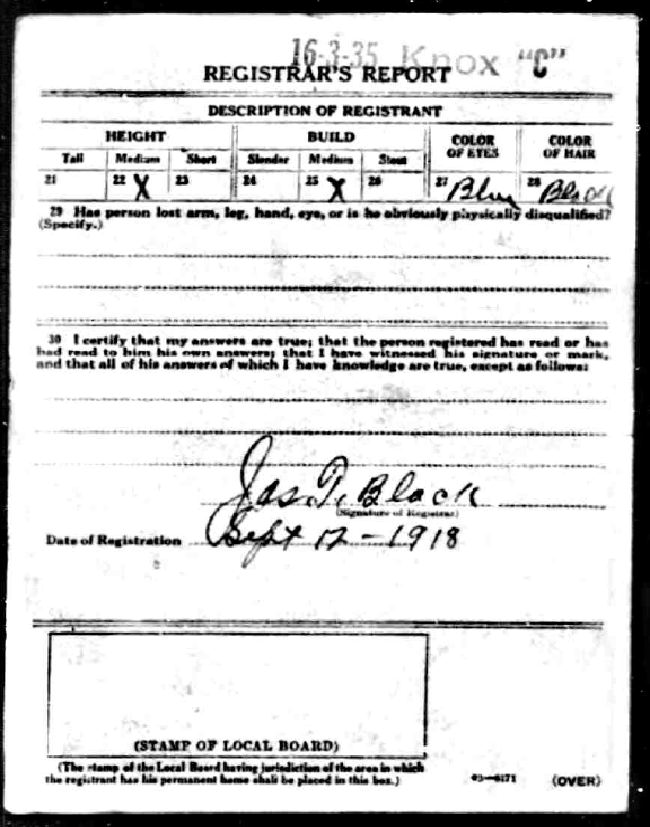 16-3-35 Knox "C"
REGISTRAR'S REPORT
DESCRIPTION OF REGISTRANT
HEIGHT BUILD COLOR OF EYES COLOR OF HAIR
Tall Medium Short Slender Medium Stout
21 22 X 23 24 25 X 26 27 Blue 28 Black
29 Has person lost arm, leg, hand, eye, or is he obviously physically disqualified?
(Specify.)
30 I certify that my answers are true; that the person registered has read or has
had read to him his own answers; that I have witnessed his signature or mark,
and that all of his answers of which I have knowledge are true, except as follows:
Jas. T. Black
(Signature of Registrar)
Date of Registration Sept 12 - 1918
(STAMP OF LOCAL BOARD)
(The stamp of the Local Board having jurisdiction of the area in which
the registrant has his permanent home shall be placed in this box.)
03—6171 (OVER)